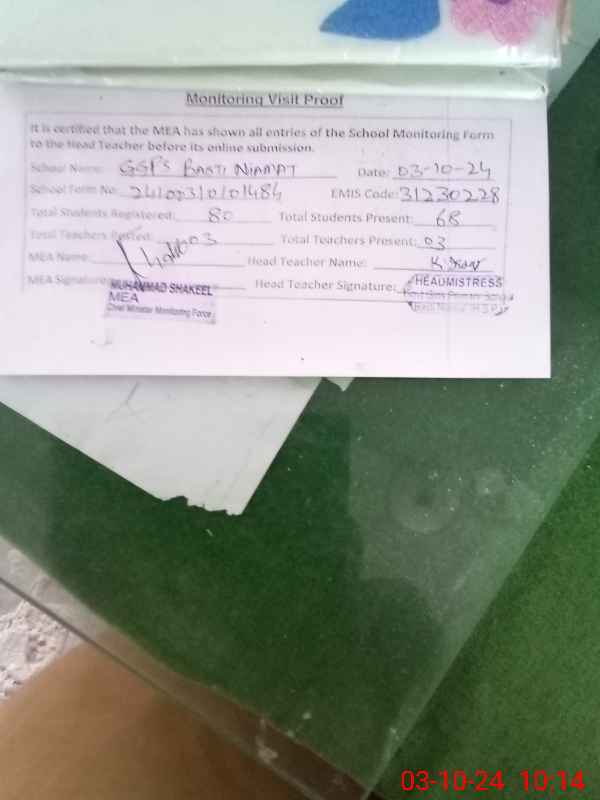 Monitoring Visit Proof
It is certified that the MEA has shown all entries of the School Monitoring Form
to the Head Teacher before its online submission.
School Name: GGPS BASTI NIAMAT Date: 03-10-24
School Form No: EMIS Code: 31230228
Total Students Registered: 80 Total Students Present: 68
Total Teachers Posted: 03 Total Teachers Present: 03
MEA Name: Head Teacher Name:
MEA Signature: Head Teacher Signature:
MUHAMMAD SHAKEEL
MEA
Chief Minister Monitoring Force
HEADMISTRESS
03-10-24 10:14